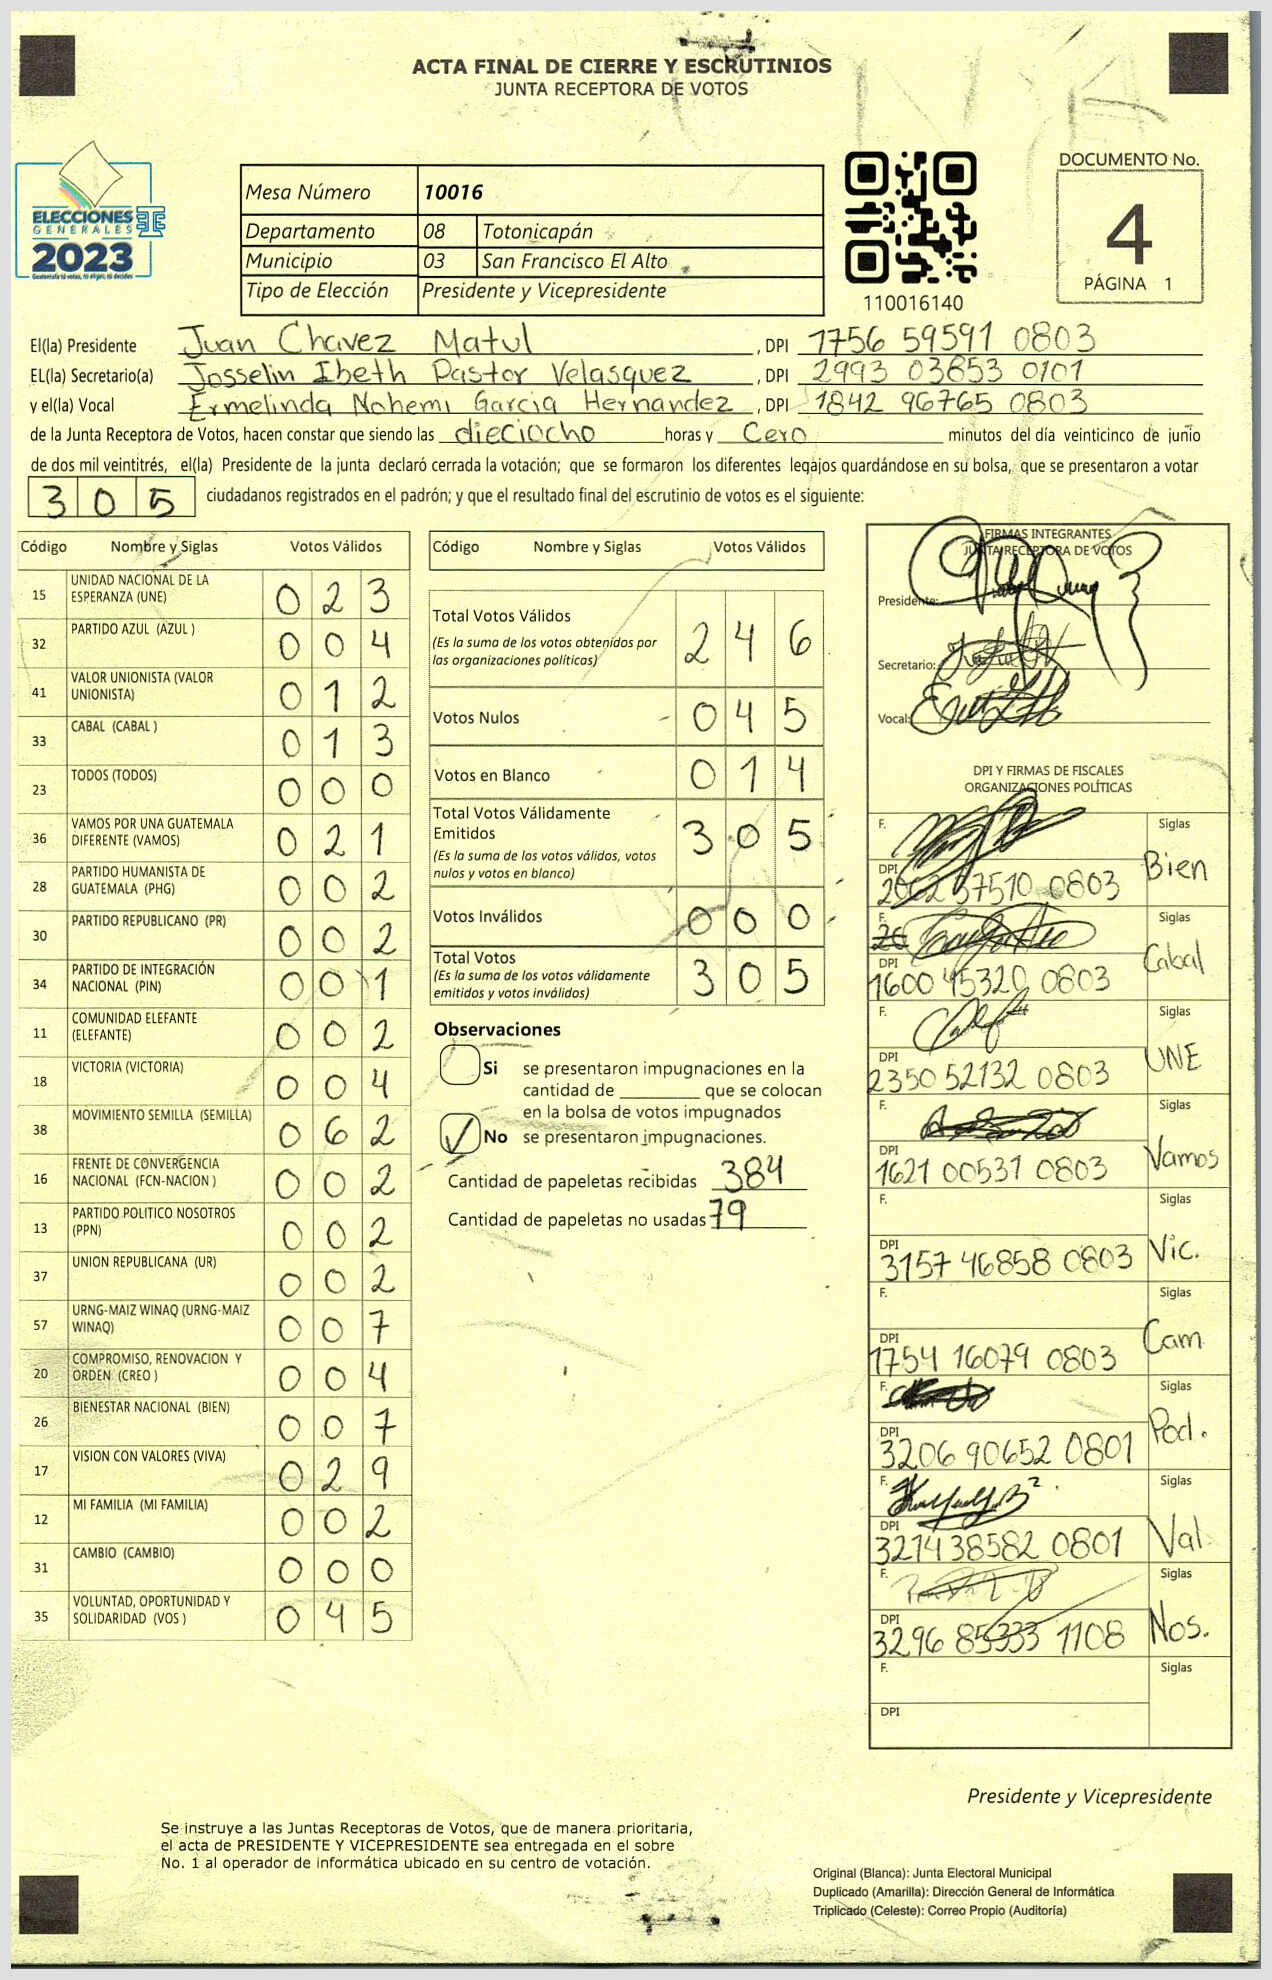 ACTA FINAL DE CIERRE Y ESCRUTINIOS
JUNTA RECEPTORA DE VOTOS
ELECCIONES
GENERALES
2023
Mesa Número 10016
Departamento 08 Totonicapán
Municipio 03 San Francisco El Alto
Tipo de Elección Presidente y Vicepresidente
110016140
DOCUMENTO No.
4
PÁGINA 1
El(la) Presidente Juan Chavez Matul, DPI 1756 59591 0803
EL(la) Secretario(a) Josselin Ibeth Pastor Velasquez, DPI 2993 03853 0101
y el(la) Vocal Ermelinda Nohemi Garcia Hernandez, DPI 1842 96765 0803
de la Junta Receptora de Votos, hacen constar que siendo las dieciocho horas y Cero minutos del día veinticinco de junio
de dos mil veintitrés, el(la) Presidente de la junta declaró cerrada la votación; que se formaron los diferentes legajos guardándose en su bolsa, que se presentaron a votar
305 ciudadanos registrados en el padrón; y que el resultado final del escrutinio de votos es el siguiente:
Código Nombre y Siglas Votos Válidos
15 UNIDAD NACIONAL DE LA ESPERANZA (UNE) 023
32 PARTIDO AZUL (AZUL ) 004
41 VALOR UNIONISTA (VALOR UNIONISTA) 012
33 CABAL (CABAL ) 013
23 TODOS (TODOS) 000
36 VAMOS POR UNA GUATEMALA DIFERENTE (VAMOS) 021
28 PARTIDO HUMANISTA DE GUATEMALA (PHG) 002
30 PARTIDO REPUBLICANO (PR) 002
34 PARTIDO DE INTEGRACIÓN NACIONAL (PIN) 001
11 COMUNIDAD ELEFANTE (ELEFANTE) 002
18 VICTORIA (VICTORIA) 004
38 MOVIMIENTO SEMILLA (SEMILLA) 062
16 FRENTE DE CONVERGENCIA NACIONAL (FCN-NACION ) 002
13 PARTIDO POLITICO NOSOTROS (PPN) 002
37 UNION REPUBLICANA (UR) 002
57 URNG-MAIZ WINAQ (URNG-MAIZ WINAQ) 007
20 COMPROMISO, RENOVACION Y ORDEN (CREO ) 004
26 BIENESTAR NACIONAL (BIEN) 007
17 VISION CON VALORES (VIVA) 029
12 MI FAMILIA (MI FAMILIA) 002
31 CAMBIO (CAMBIO) 000
35 VOLUNTAD, OPORTUNIDAD Y SOLIDARIDAD (VOS ) 045
Código Nombre y Siglas Votos Válidos
Total Votos Válidos 246
(Es la suma de los votos obtenidos por
las organizaciones políticas)
Votos Nulos 045
Votos en Blanco 014
Total Votos Válidamente
Emitidos 305
(Es la suma de los votos válidos, votos
nulos y votos en blanco)
Votos Inválidos 000
Total Votos 305
(Es la suma de los votos válidamente
emitidos y votos inválidos)
Observaciones
Si se presentaron impugnaciones en la
cantidad de ________ que se colocan
en la bolsa de votos impugnados
No se presentaron impugnaciones.
Cantidad de papeletas recibidas 384
Cantidad de papeletas no usadas 79
FIRMAS INTEGRANTES
JUNTA RECEPTORA DE VOTOS
Presidente:
Secretario:
Vocal:
DPI Y FIRMAS DE FISCALES
ORGANIZACIONES POLÍTICAS
F. Siglas
DPI 57510 0803 Bien
F. Siglas
DPI 1600 45320 0803 Cabal
F. Siglas
DPI 2350 52132 0803 UNE
F. Siglas
DPI 1621 00531 0803 Vamos
F. Siglas
DPI 3157 46858 0803 Vic.
F. Siglas
DPI 1754 16079 0803 Cam
F. Siglas
DPI 3206 90652 0801 Pod.
F. Siglas
DPI 3214 38582 0801 Val
F. Siglas
DPI 3296 85333 1108 Nos.
F. Siglas
DPI
Presidente y Vicepresidente
Se instruye a las Juntas Receptoras de Votos, que de manera prioritaria,
el acta de PRESIDENTE Y VICEPRESIDENTE sea entregada en el sobre
No. 1 al operador de informática ubicado en su centro de votación.
Original (Blanca): Junta Electoral Municipal
Duplicado (Amarilla): Dirección General de Informática
Triplicado (Celeste): Correo Propio (Auditoría)